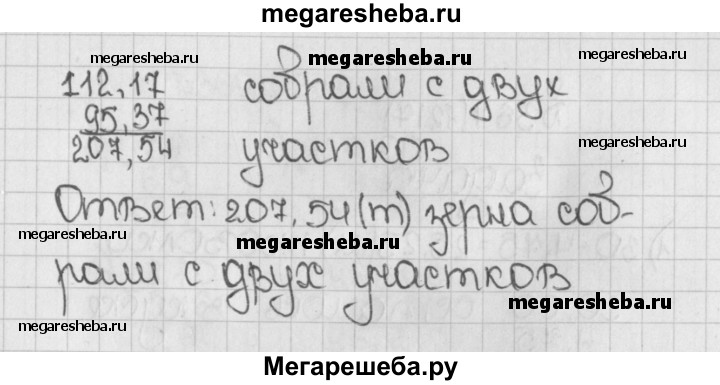 megaresheba.ru
megaresheba.ru megaresheba.ru megaresheba.ru
112,17 собрали с двух
95,37
megaresheba.ru
megaresheba.ru
207,54 участков
Ответ: 207,54 (т) зерна соб-
megaresheba.ru megaresheba.ru megaresheba.ru
рали с двух участков
megaresheba.ru
megaresheba.ru
Мегарешеба.ру